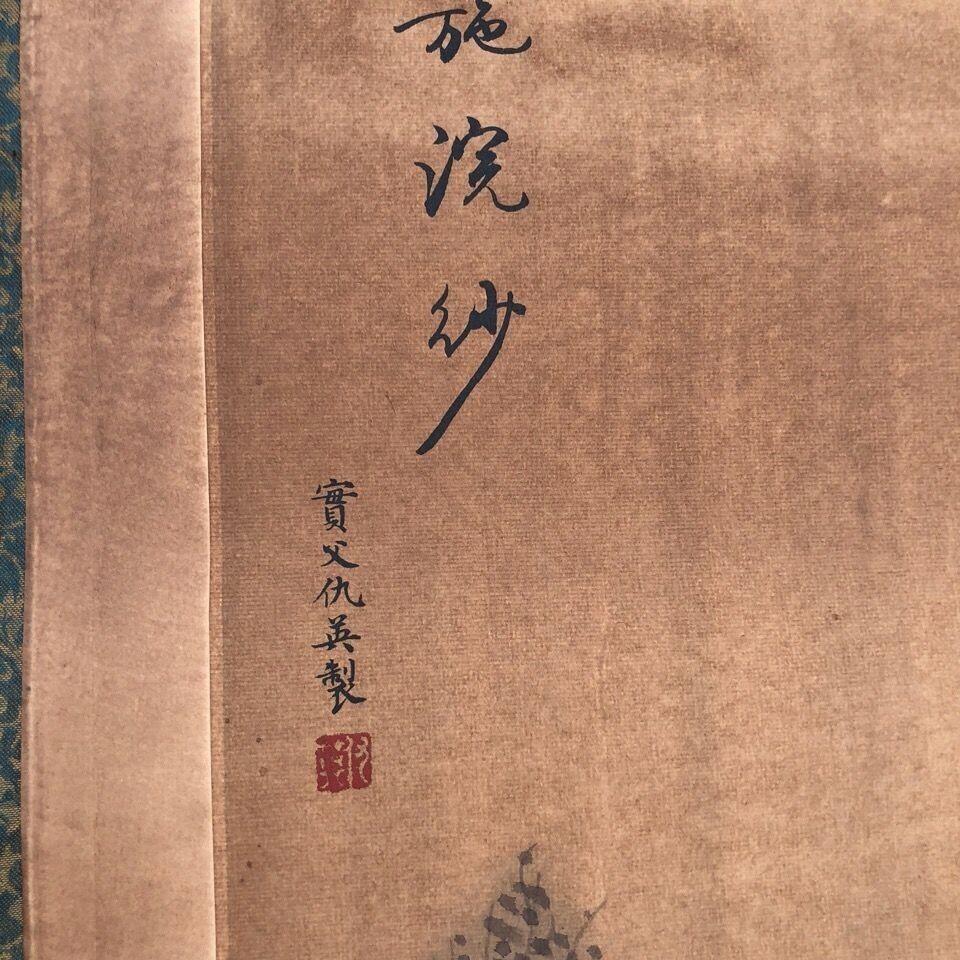 施浣紗
實父仇英製